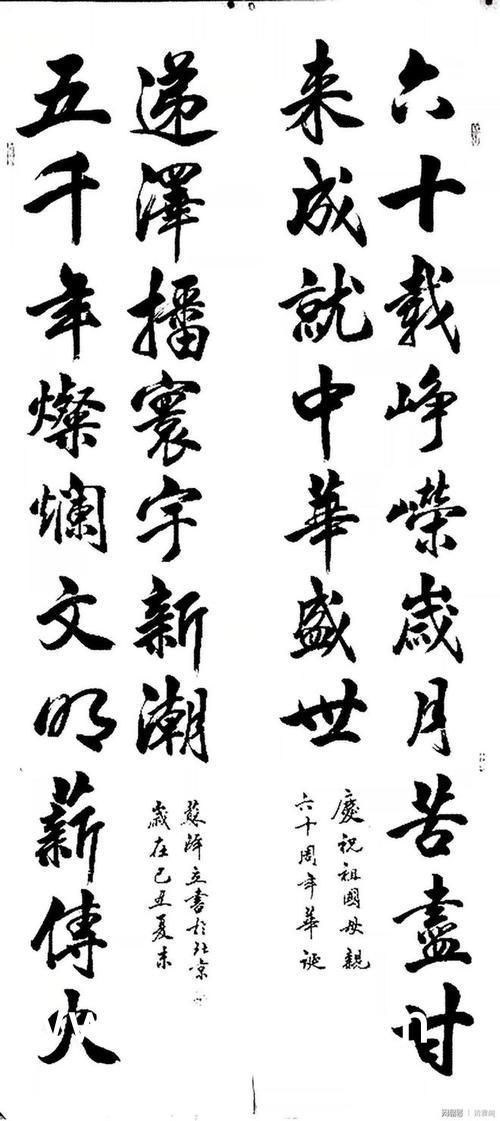 六十載崢嶸歲月苦盡甘
来成就中華盛世
慶祝祖國母親
六十周年華誕
五千年燦爛文明薪傳火
遞澤播寰宇新潮
歲在己丑夏末
蘇立書於北京
网易号